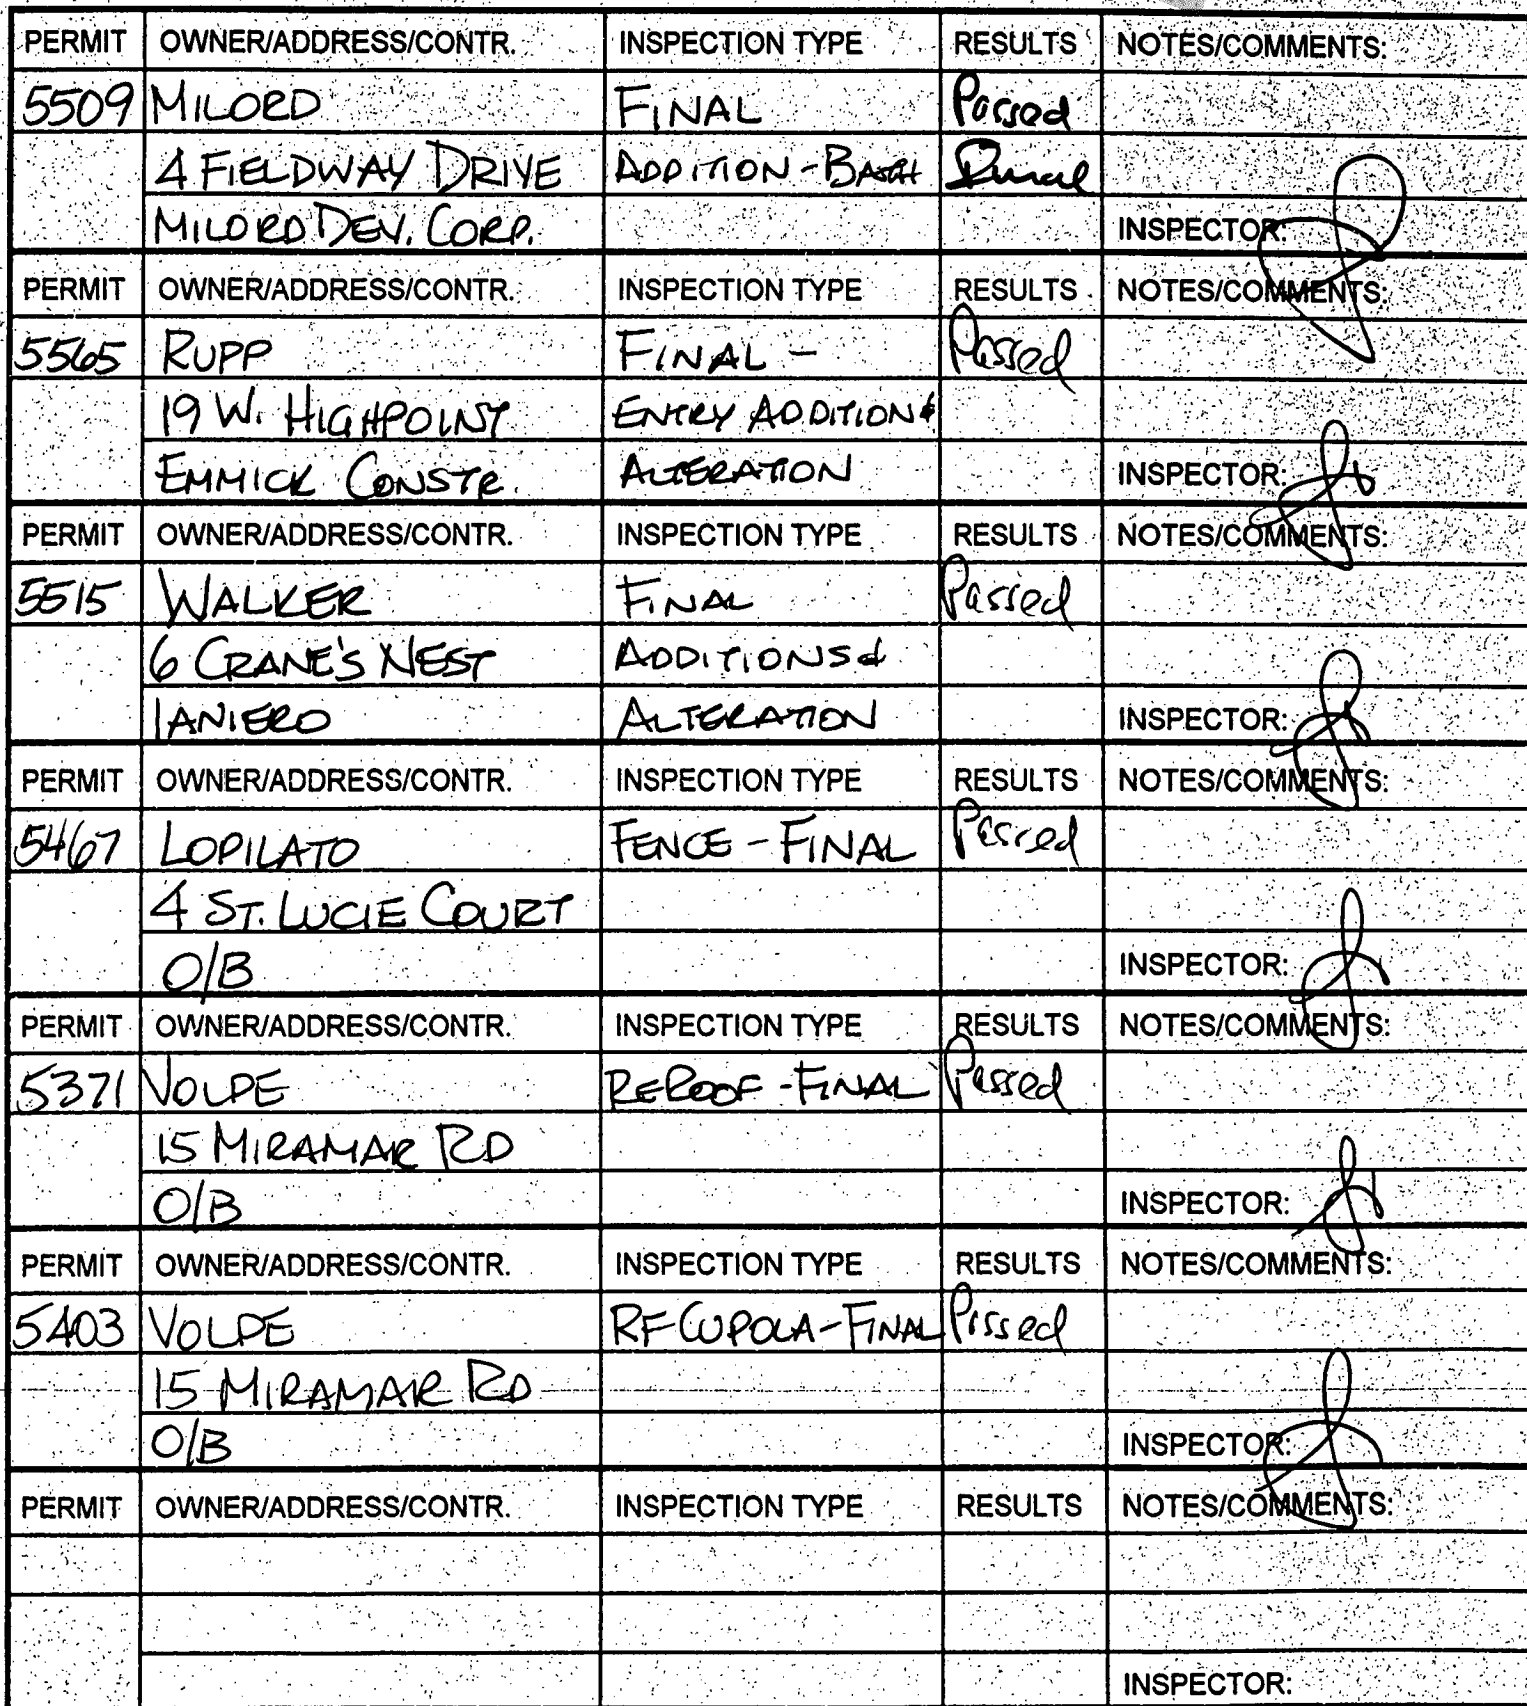 PERMIT OWNER/ADDRESS/CONTR. INSPECTION TYPE RESULTS NOTES/COMMENTS:
5509 MILORD FINAL Passed
4 FIELDWAY DRIVE ADDITION - BATH
MILORD DEV. CORP. INSPECTOR:
PERMIT OWNER/ADDRESS/CONTR. INSPECTION TYPE RESULTS NOTES/COMMENTS:
5565 RUPP FINAL - Passed
19 W. HIGHPOINT ENTRY ADDITION &
EMMICK CONSTR. ALTERATION INSPECTOR:
PERMIT OWNER/ADDRESS/CONTR. INSPECTION TYPE RESULTS NOTES/COMMENTS:
5515 WALKER FINAL Passed
6 CRANE'S NEST ADDITIONS &
IANIERO ALTERATION INSPECTOR:
PERMIT OWNER/ADDRESS/CONTR. INSPECTION TYPE RESULTS NOTES/COMMENTS:
5467 LOPILATO FENCE - FINAL Passed
4 ST. LUCIE COURT
O/B INSPECTOR:
PERMIT OWNER/ADDRESS/CONTR. INSPECTION TYPE RESULTS NOTES/COMMENTS:
5371 VOLPE REROOF - FINAL Passed
15 MIRAMAR RD
O/B INSPECTOR:
PERMIT OWNER/ADDRESS/CONTR. INSPECTION TYPE RESULTS NOTES/COMMENTS:
5403 VOLPE RF CUPOLA - FINAL Passed
15 MIRAMAR RD
O/B INSPECTOR:
PERMIT OWNER/ADDRESS/CONTR. INSPECTION TYPE RESULTS NOTES/COMMENTS:
INSPECTOR: